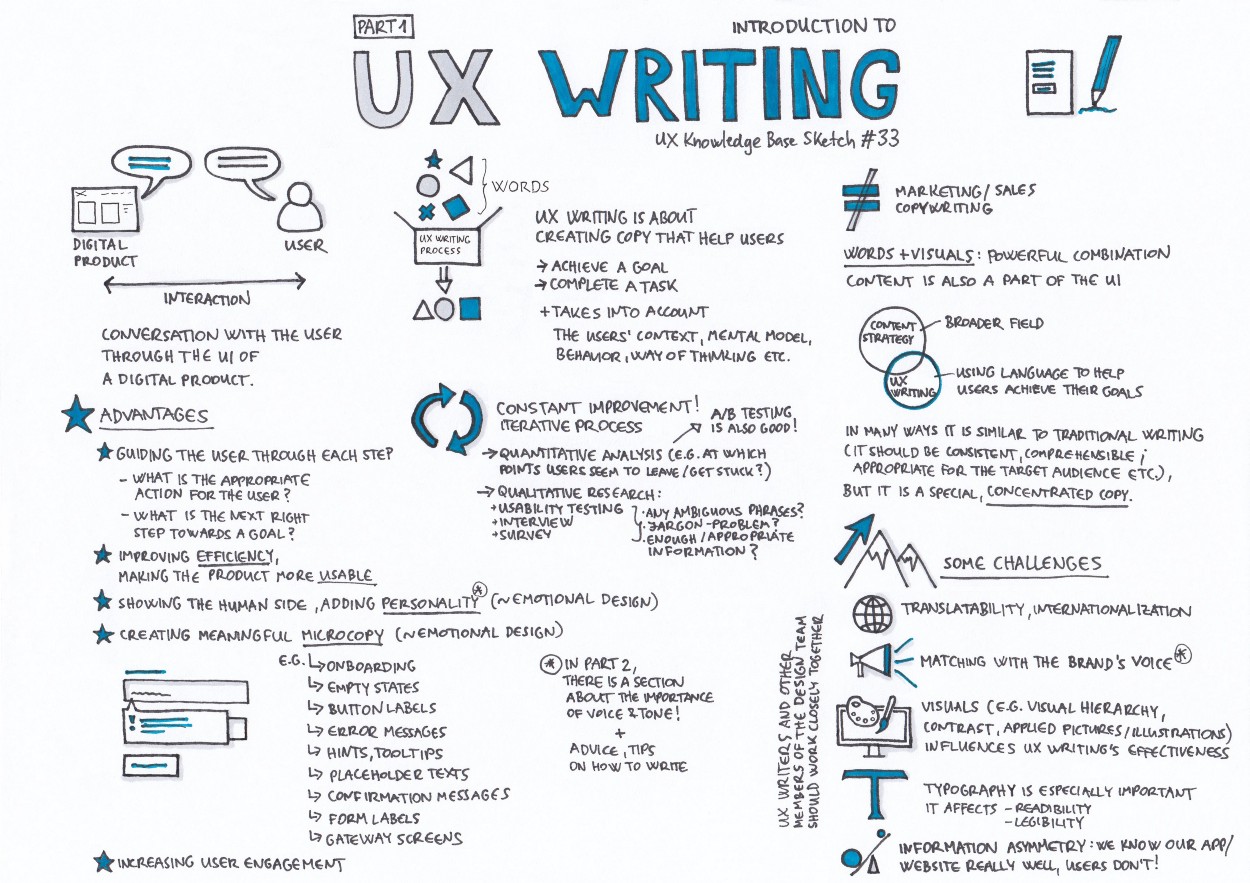 PART 1
INTRODUCTION TO
UX WRITING
UX Knowledge Base Sketch #33
DIGITAL
PRODUCT
USER
INTERACTION
CONVERSATION WITH THE USER
THROUGH THE UI OF
A DIGITAL PRODUCT.
WORDS
UX WRITING
PROCESS
UX WRITING IS ABOUT
CREATING COPY THAT HELP USERS
→ ACHIEVE A GOAL
→ COMPLETE A TASK
+ TAKES INTO ACCOUNT
THE USERS' CONTEXT, MENTAL MODEL,
BEHAVIOR, WAY OF THINKING ETC.
≠ MARKETING/SALES
COPYWRITING
WORDS + VISUALS: POWERFUL COMBINATION
CONTENT IS ALSO A PART OF THE UI
CONTENT
STRATEGY
BROADER FIELD
UX
WRITING
USING LANGUAGE TO HELP
USERS ACHIEVE THEIR GOALS
IN MANY WAYS IT IS SIMILAR TO TRADITIONAL WRITING
(IT SHOULD BE CONSISTENT, COMPREHENSIBLE,
APPROPRIATE FOR THE TARGET AUDIENCE ETC.),
BUT IT IS A SPECIAL, CONCENTRATED COPY.
ADVANTAGES
GUIDING THE USER THROUGH EACH STEP
- WHAT IS THE APPROPRIATE
ACTION FOR THE USER?
- WHAT IS THE NEXT RIGHT
STEP TOWARDS A GOAL?
IMPROVING EFFICIENCY,
MAKING THE PRODUCT MORE USABLE
SHOWING THE HUMAN SIDE, ADDING PERSONALITY* (~EMOTIONAL DESIGN)
CREATING MEANINGFUL MICROCOPY (~EMOTIONAL DESIGN)
E.G. ↳ ONBOARDING
↳ EMPTY STATES
↳ BUTTON LABELS
↳ ERROR MESSAGES
↳ HINTS, TOOLTIPS
↳ PLACEHOLDER TEXTS
↳ CONFIRMATION MESSAGES
↳ FORM LABELS
↳ GATEWAY SCREENS
!
INCREASING USER ENGAGEMENT
CONSTANT IMPROVEMENT!
ITERATIVE PROCESS
A/B TESTING
IS ALSO GOOD!
→ QUANTITATIVE ANALYSIS (E.G. AT WHICH
POINTS USERS SEEM TO LEAVE/GET STUCK?)
→ QUALITATIVE RESEARCH:
+ USABILITY TESTING
+ INTERVIEW
+ SURVEY
· ANY AMBIGUOUS PHRASES?
· JARGON-PROBLEM?
· ENOUGH/APPROPRIATE
INFORMATION?
* IN PART 2,
THERE IS A SECTION
ABOUT THE IMPORTANCE
OF VOICE & TONE!
+
ADVICE, TIPS
ON HOW TO WRITE
UX WRITERS AND OTHER
MEMBERS OF THE DESIGN TEAM
SHOULD WORK CLOSELY TOGETHER
SOME CHALLENGES
TRANSLATABILITY, INTERNATIONALIZATION
MATCHING WITH THE BRAND'S VOICE*
VISUALS (E.G. VISUAL HIERARCHY,
CONTRAST, APPLIED PICTURES/ILLUSTRATIONS)
INFLUENCES UX WRITING'S EFFECTIVENESS
T
TYPOGRAPHY IS ESPECIALLY IMPORTANT
IT AFFECTS - READIBILITY
- LEGIBILITY
INFORMATION ASYMMETRY: WE KNOW OUR APP/
WEBSITE REALLY WELL, USERS DON'T!